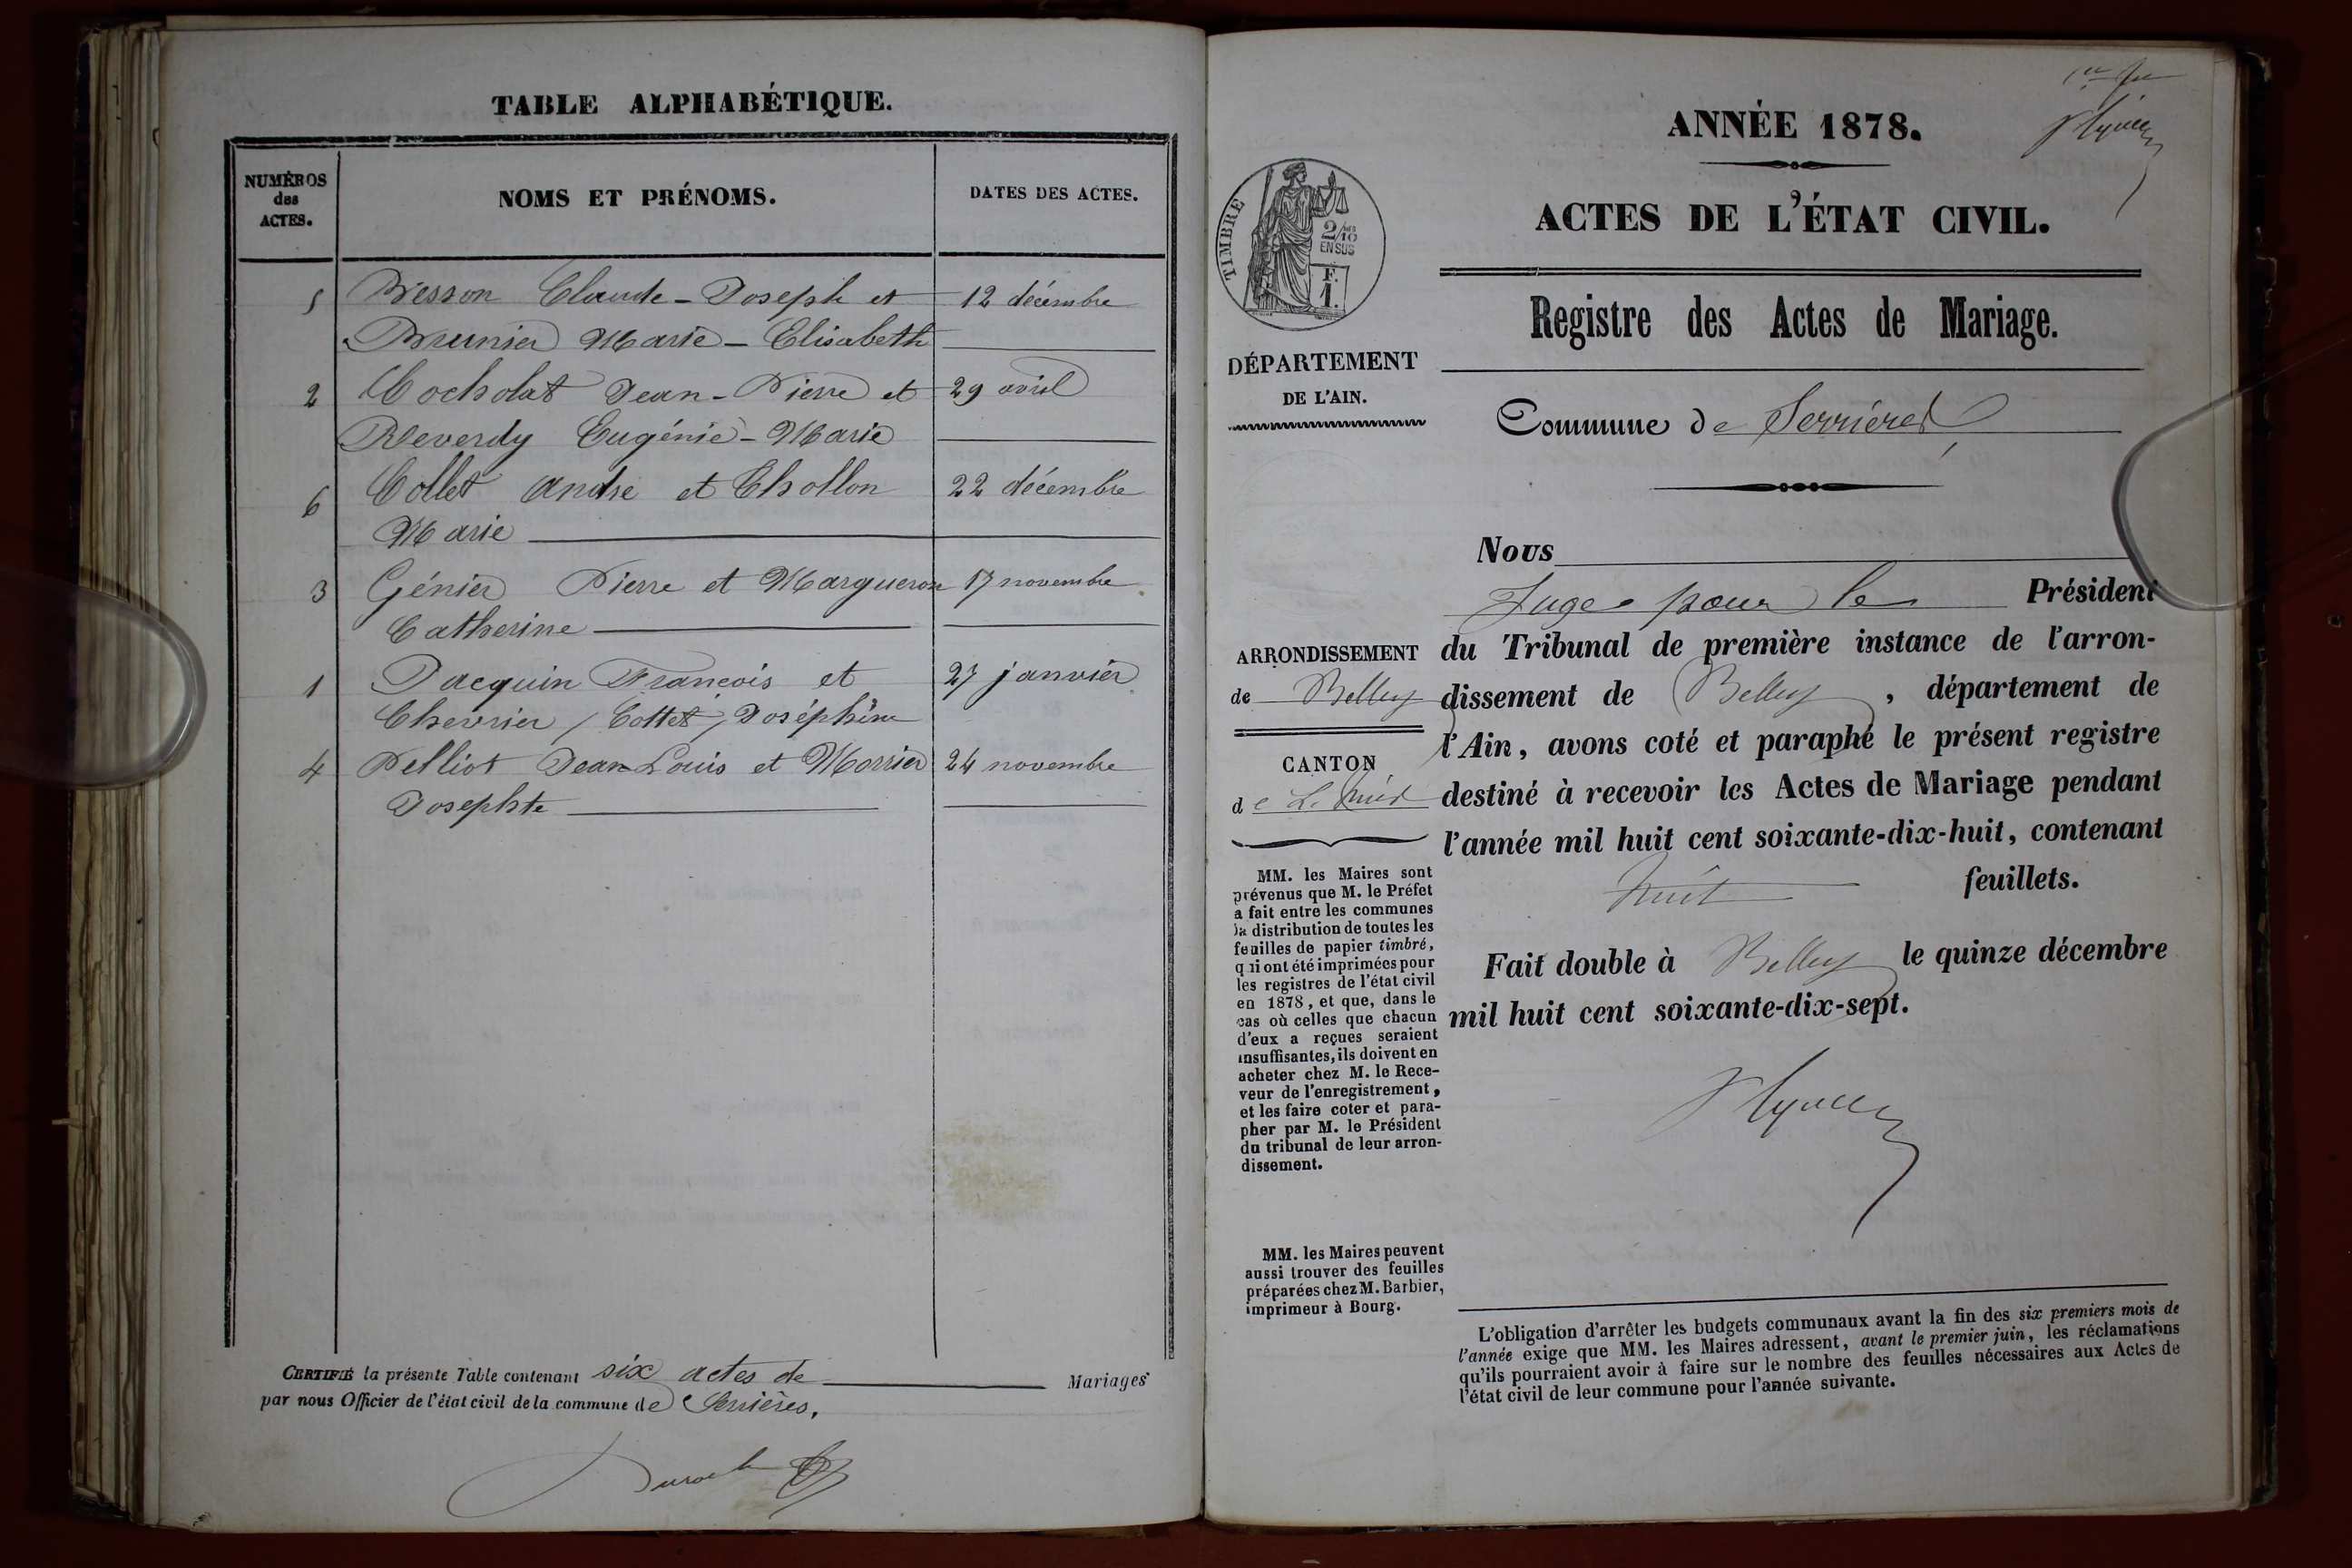 TABLE ALPHABÉTIQUE.
NUMÉROS
des
ACTES.
NOMS ET PRÉNOMS.
DATES DES ACTES.
5 Besson Claude-Joseph et 12 décembre
Brunier Marie-Elisabeth
2 Cocholat Jean-Pierre et 29 avril
Reverdy Eugénie-Marie
6 Collet André et Chollon 22 décembre
Marie
3 Génier Pierre et Margueron 17 novembre
Catherine
1 Jacquin François et 27 janvier
Chevrier, Cottet, Joséphine
4 Pelliot Jean-Louis et Morrier 24 novembre
Josephte
CERTIFIÉ la présente Table contenant six actes de Mariages
par nous Officier de l'état civil de la commune de Serrières.
ANNÉE 1878.
ACTES DE L'ÉTAT CIVIL.
TIMBRE
2/10
EN SUS
F.
1.
Registre des Actes de Mariage.
DÉPARTEMENT
DE L'AIN.
Commune de Serrières
Nous
Juge pour le Président
ARRONDISSEMENT
de Belley
CANTON
de
du Tribunal de première instance de l'arron-
dissement de Belley, département de
l'Ain, avons coté et paraphé le présent registre
destiné à recevoir les Actes de Mariage pendant
l'année mil huit cent soixante-dix-huit, contenant
huit feuillets.
Fait double à Belley le quinze décembre
mil huit cent soixante-dix-sept.
MM. les Maires sont
prévenus que M. le Préfet
a fait entre les communes
la distribution de toutes les
feuilles de papier timbré,
qui ont été imprimées pour
les registres de l'état civil
en 1878, et que, dans le
cas où celles que chacun
d'eux a reçues seraient
insuffisantes, ils doivent en
acheter chez M. le Rece-
veur de l'enregistrement,
et les faire coter et para-
pher par M. le Président
du tribunal de leur arron-
dissement.
MM. les Maires peuvent
aussi trouver des feuilles
préparées chez M. Barbier,
imprimeur à Bourg.
L'obligation d'arrêter les budgets communaux avant la fin des six premiers mois de
l'année exige que MM. les Maires adressent, avant le premier juin, les réclamations
qu'ils pourraient avoir à faire sur le nombre des feuilles nécessaires aux Actes de
l'état civil de leur commune pour l'année suivante.